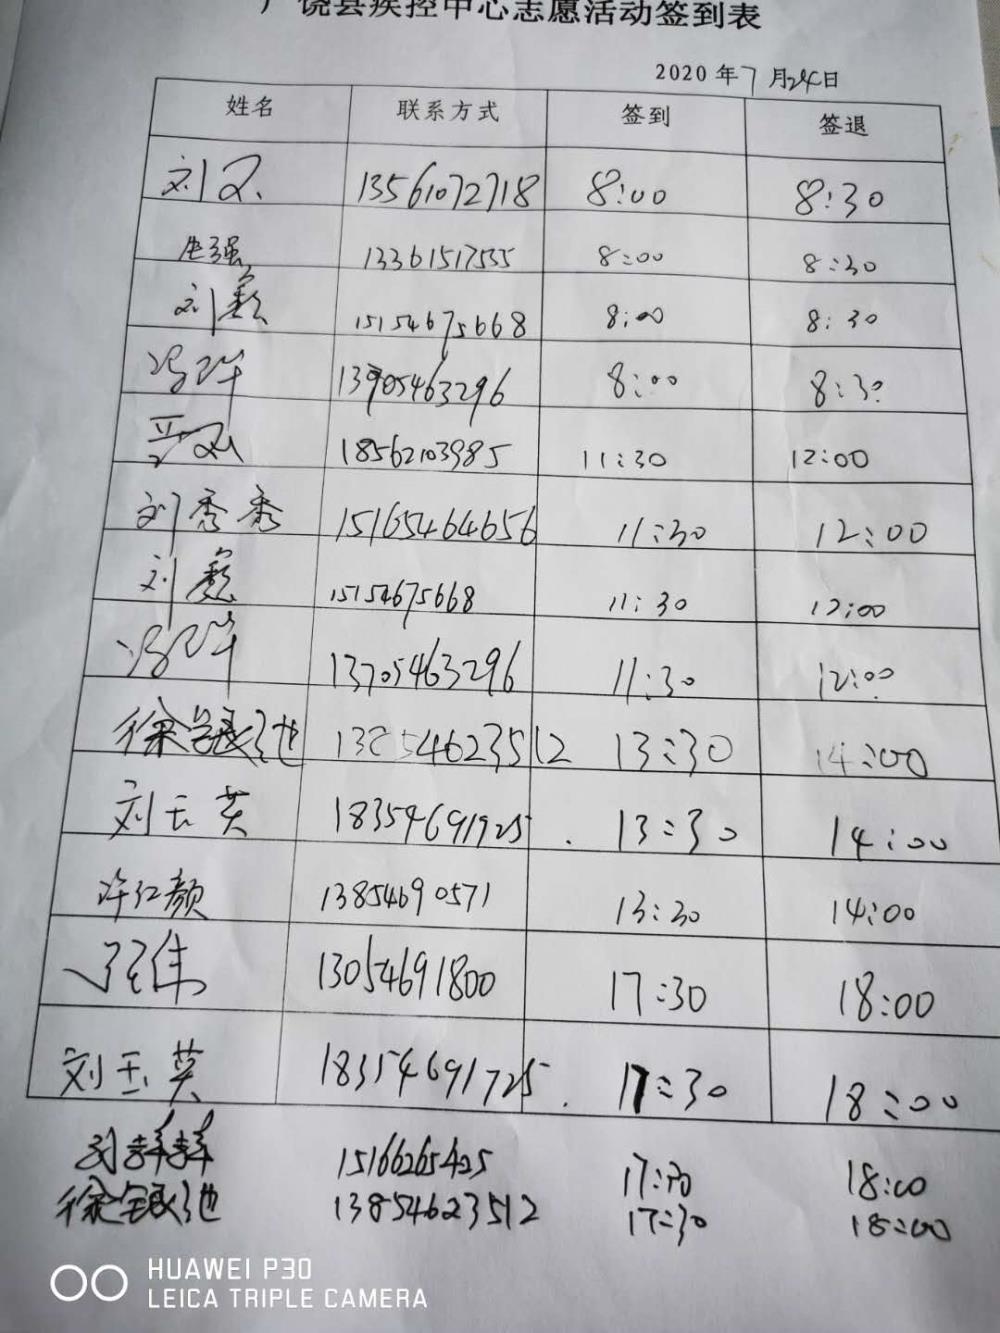 广饶县疾控中心志愿活动签到表
2020 年 7 月 24 日
姓名 联系方式 签到 签退
刘 13561072718 8:00 8:30
强 13361517535 8:00 8:30
刘巍 15154675668 8:00 8:30
冯 13905463296 8:00 8:30
18562103985 11:30 12:00
刘秀秀 15165464656 11:30 12:00
刘巍 15154675668 11:30 12:00
冯 13705463296 11:30 12:00
徐银池 13854623512 13:30 14:00
刘玉英 18354691725 13:30 14:00
许红颜 13854690571 13:30 14:00
伟 13054691800 17:30 18:00
刘玉英 18354691725 17:30 18:00
刘群群 15166265425 17:30 18:00
徐银池 13854623512 17:30 18:00
HUAWEI P30
LEICA TRIPLE CAMERA